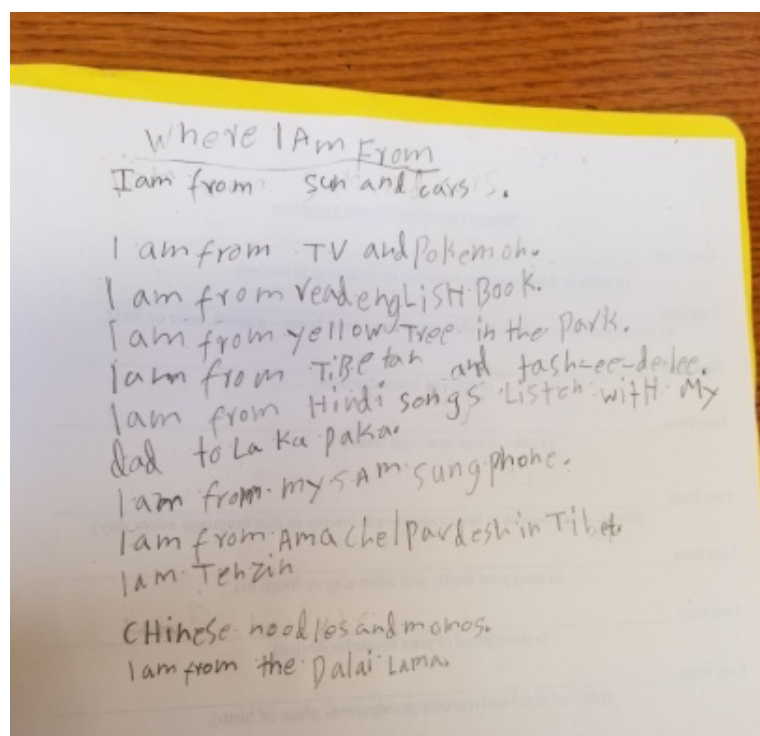 Where I Am From
I am from sun and cars.
I am from TV and Pokemon.
I am from read engLiSH Book.
I am from yellow Tree in the Park.
I am from TiBetan and tash-ee-de-lee.
I am from Hindi songs Listen with My
dad to La Ka Paka.
I am from my SAmsung phone.
I am from Ama chel pardesh in Tibet
I am Tenzin
CHinese noodles and momos.
I am from the Dalai Lama.